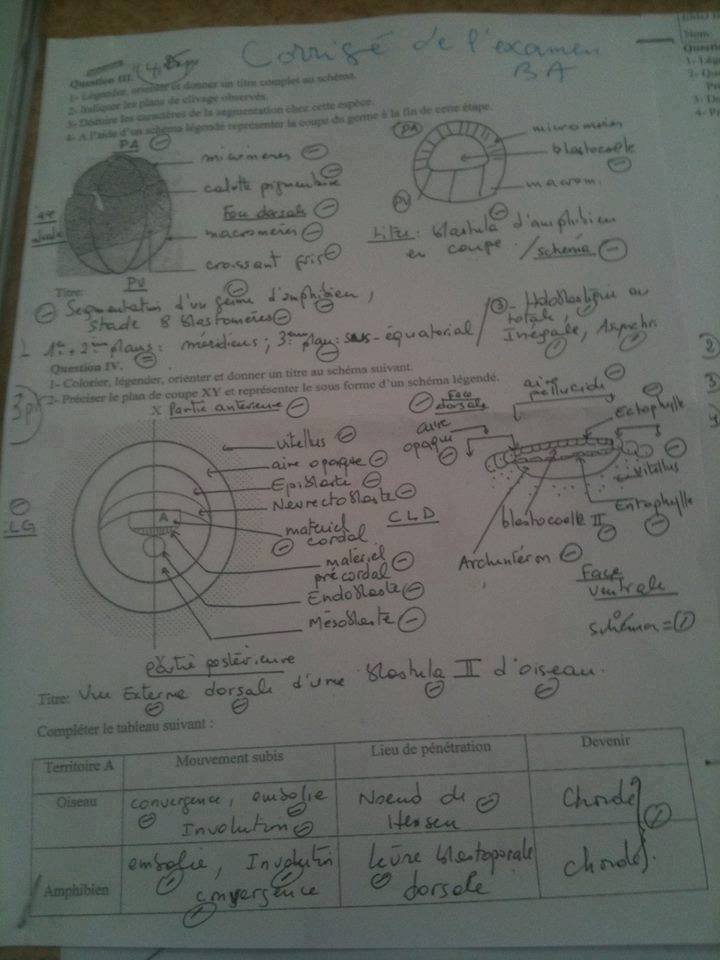 Corrigé de l'examen
BA
Question III.
1- Légender, orienter et donner un titre complet au schéma.
2- Indiquer les plans de clivage observés.
3- Déduire les caractères de la segmentation chez cette espèce.
4- A l'aide d'un schéma légendé representer la coupe du germe à la fin de cette étape.
PA
micromères
calotte pigmentaire
Face dorsale
macromères
croissant gris
PV
PA
micromères
blastocoele
macrom.
PV
Titre: blastula d'amphibien
en coupe / schéma
Titre:
Segmentation d'un germe d'amphibien,
stade 8 blastomères
1er + 2ème plans: méridiens; 3ème plan: sus-équatorial
3- Holoblastique ou
totale,
Inégale, Asynchr.
Question IV.
1- Colorier, légender, orienter et donner un titre au schéma suivant.
2- Préciser le plan de coupe XY et représenter le sous forme d'un schéma légendé.
3p
X Partie antérieure
vitellus
aire opaque
Epiblaste
Neurectoblaste
matériel
cordal
matériel
précordal
Endoblaste
Mésoblaste
A
LG
CLD
partie postérieure
Face
dorsale
aire
opaque
aire
pellucide
Ectophylle
Vitellus
Entophylle
blastocoele II
Archentéron
Face
Ventrale
schéma = 1
Titre: Vue Externe dorsale d'une blastula II d'oiseau.
Compléter le tableau suivant :
Territoire A Mouvement subis Lieu de pénétration Devenir
Oiseau convergence, embolie Involution Noeud de Hensen Chorde
Amphibien embolie, Involution convergence lèvre blastoporale dorsale chorde